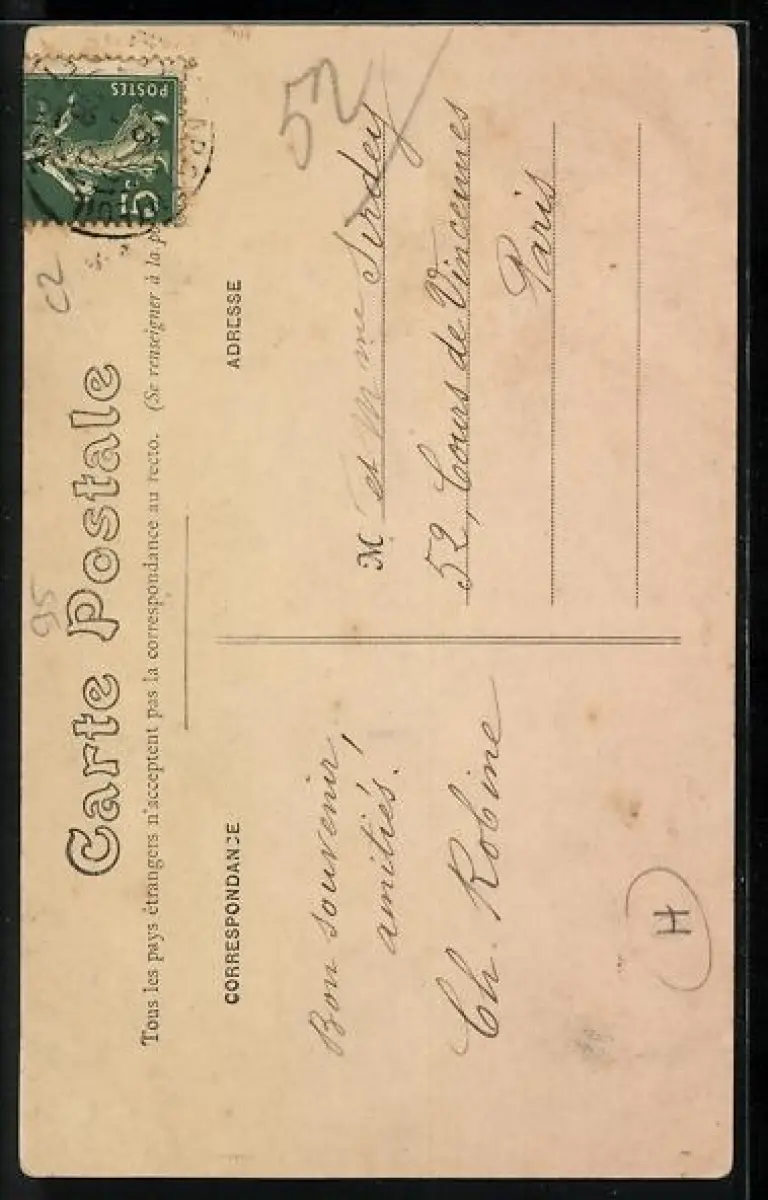 Carte Postale
Tous les pays étrangers n'acceptent pas la correspondance au recto. (Se renseigner à la
CORRESPONDANCE
ADRESSE
POSTES
5c
Bon souvenir,
amitiés.
Ch. Robine
M et Mme Sirdey
52, Cours de Vincennes
Paris
52
C2
95
H